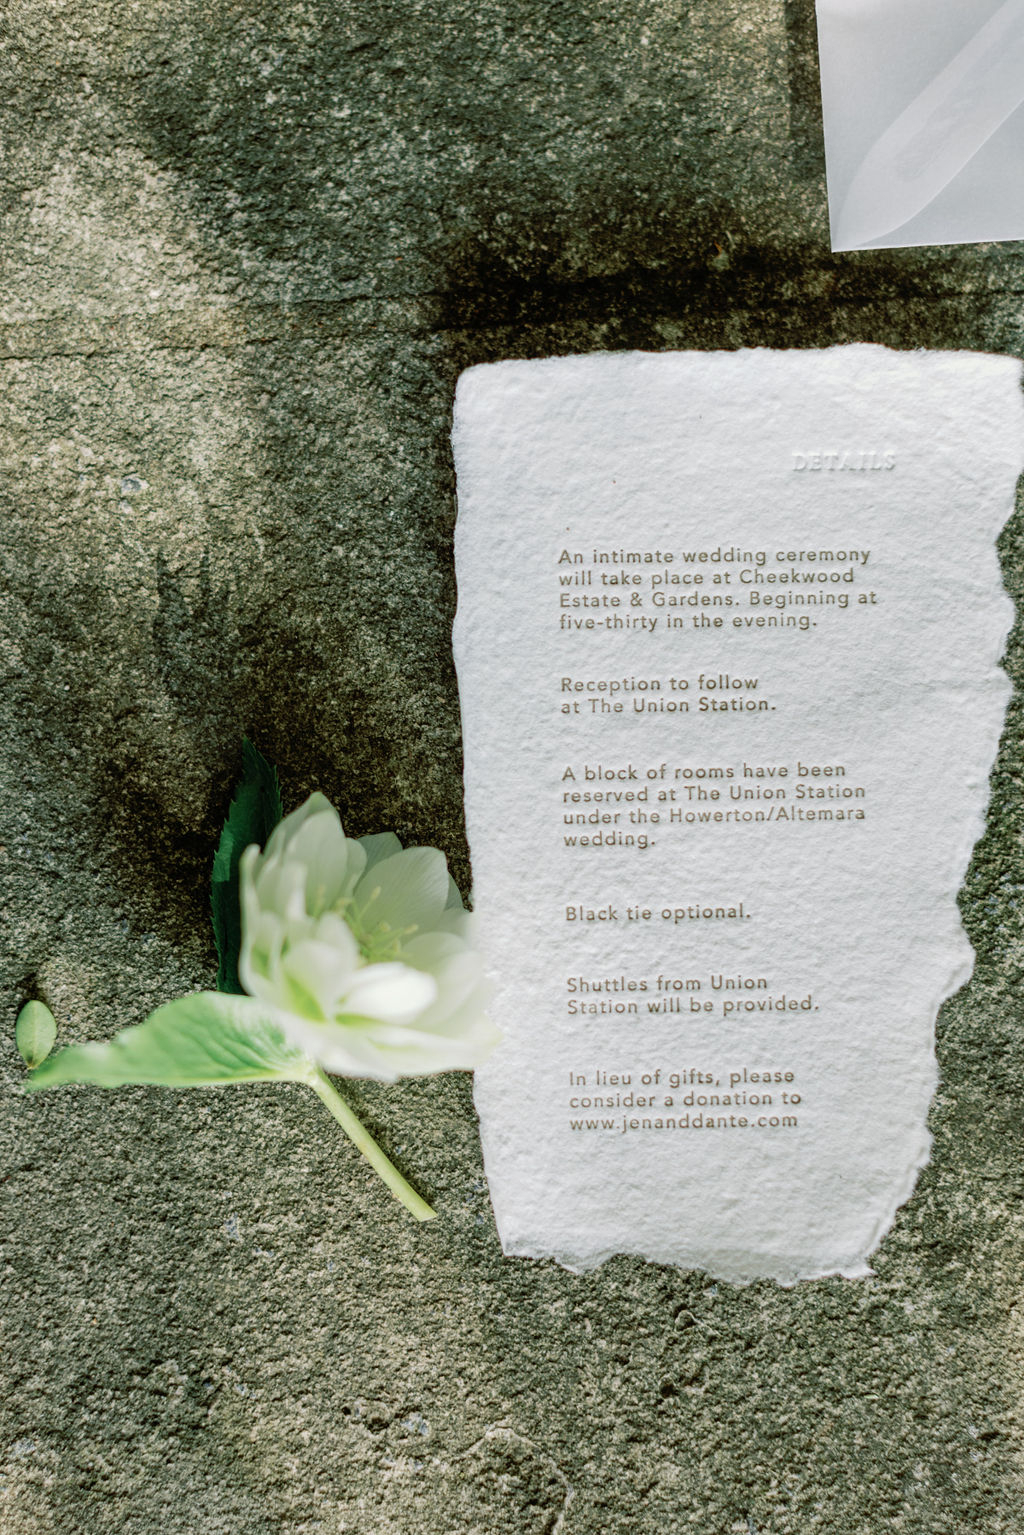 DETAILS
An intimate wedding ceremony
will take place at Cheekwood
Estate & Gardens. Beginning at
five-thirty in the evening.
Reception to follow
at The Union Station.
A block of rooms have been
reserved at The Union Station
under the Howerton/Altemara
wedding.
Black tie optional.
Shuttles from Union
Station will be provided.
In lieu of gifts, please
consider a donation to
www.jenanddante.com